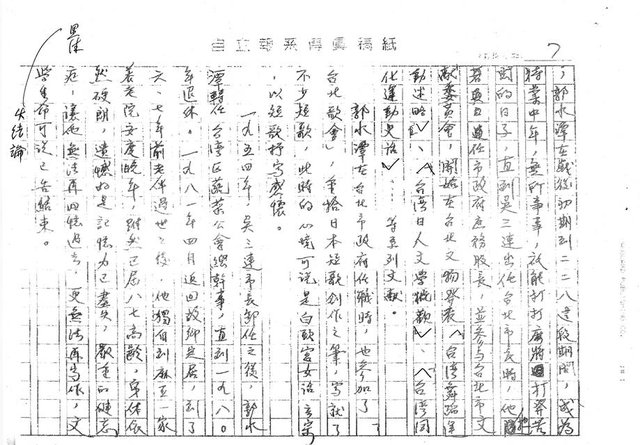 自立報系傳真稿紙
7
，郭水潭在戰後初期到二二八這段期間，成為
待業中年，無所事事，祇能打打麻將打發苦
悶的日子，直到吳三連出任台北市長時，他
若無日進任市政府庶務股長，並參與台北市文
獻委員會，開始在台北文物發表〈台灣舞蹈運
動述略〉、〈台灣日人文學概觀〉、〈台灣同
化運動史話〉等系列文獻。
郭水潭在台北市政府任職時，也參加了
台北歌會，重拾日本短歌創作之筆，寫就了
不少短歌，此時的心境可說是白頭宮女話玄宗
，以短歌抒寫感懷。
一九五四年，吳三連市長卸任之後，郭水
潭轉任台灣區蔬菜公會總幹事，直到一九八○
年退休。一九八一年四月返回故鄉定居，到了
六、七年前老伴過世之後，他獨自到麻豆一家
養老院安度晚年，雖然已屆八七高齡，身体依
然硬朗，遺憾的是記憶力已盡失，嚴重的健忘
症，讓他無法再回憶過去，更無法再寫作，文
學生命可說已告結束。
失結論